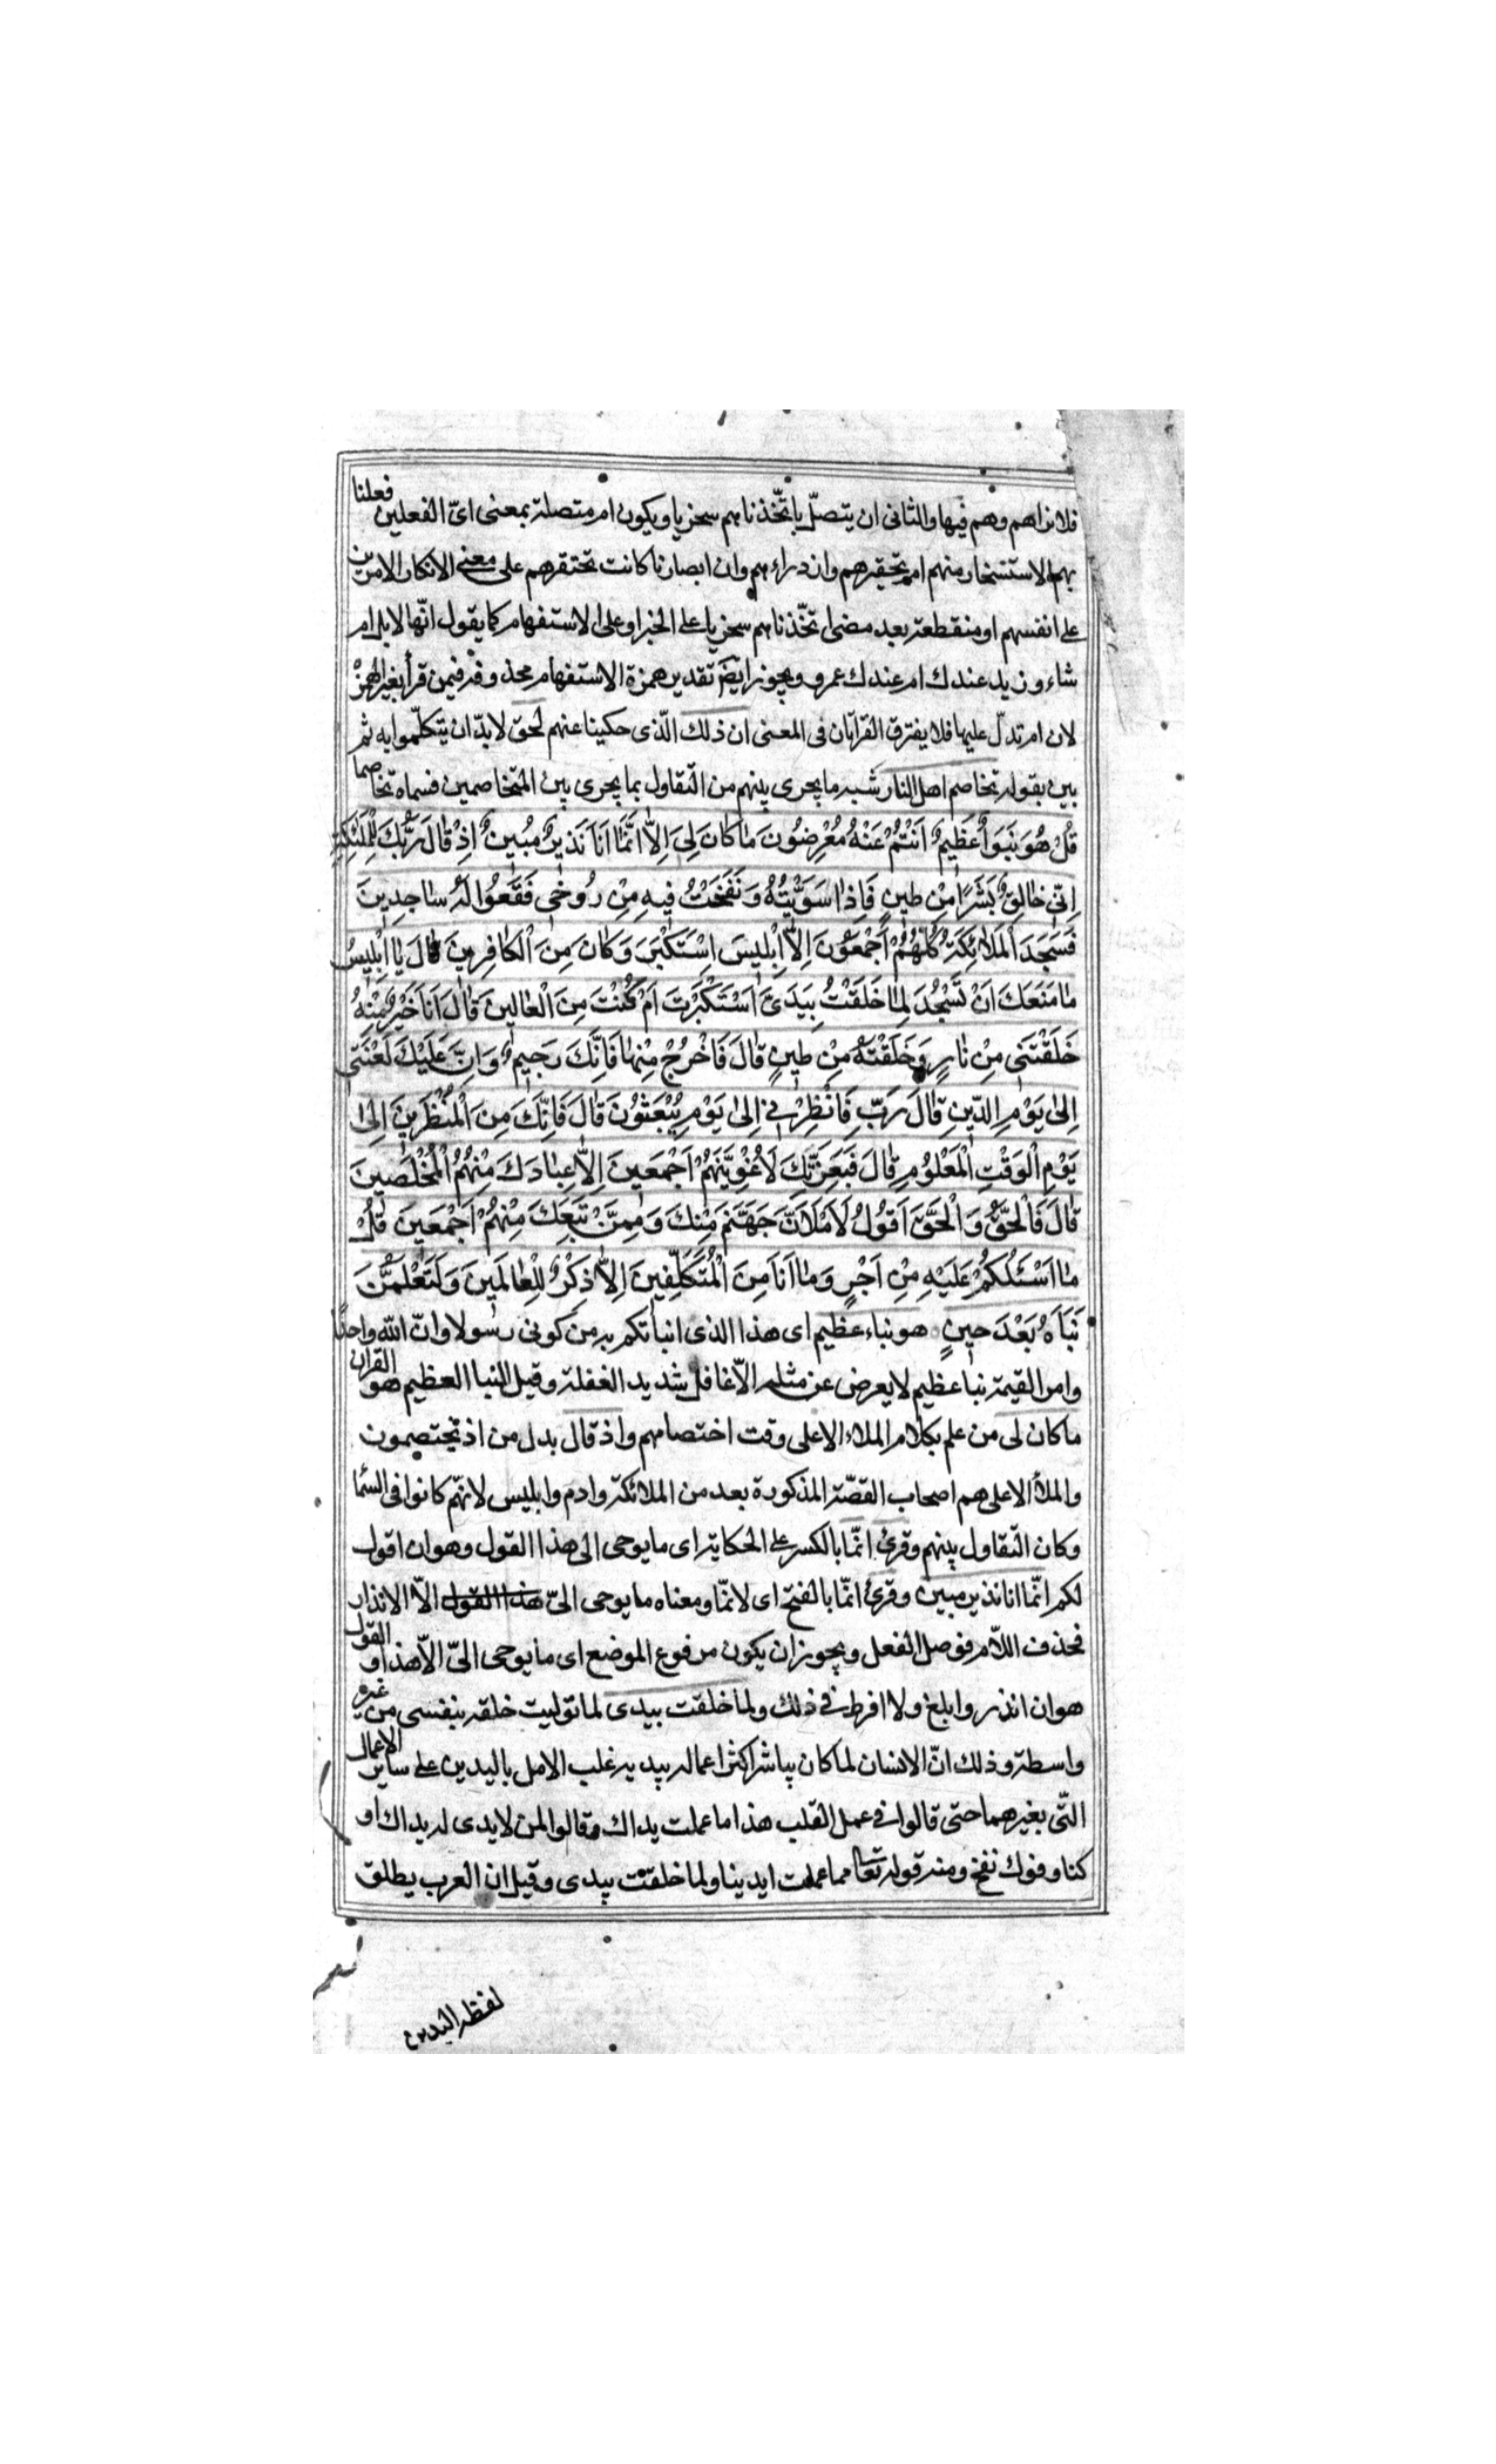 فلا نراهم وهم فيها والثاني ان يتصل باتّخذناهم سخريا ويكون ام متصلة بمعنى ايّ الفعلين فعلنا
بهم الاستسخار منهم ام تحقيرهم وازدراءهم وان ابصارنا كانت تحتقرهم على معنى الانكار الامرين
على انفسهم او منقطعة بعد مضى اتخّذناهم سخريا على الخبر او على الاستفهام كما يقول انّها لابل ام
شاء وزيد عندك ام عندك عمرو ويجوز ايضا تقدير همزة الاستفهام محذوفة فيمن قرأ بغير الهمزة
لان ام تدلّ عليها فلا يفترق القرآتان فى المعنى ان ذلك الّذى حكينا عنهم لحق لابدّ ان يتكلّموا به ثم
بين بقوله تخاصم اهل النار شبه ما يجرى بينهم من التقاول بما يجرى بين المتخاصمين فسماه تخاصما
قُلْ هُوَ نَبَؤٌا عَظِيمٌ اَنْتُمْ عَنْهُ مُعْرِضُونَ مٰا كٰانَ لِىَ اِلّٰا اَنَّمٰا اَنَا نَذيرٌ مُبينٌ اِذْ قٰالَ رَبُّكَ لِلْمَلٰئِكَةِ
اِنّى خٰالِقٌ بَشَرًا مِنْ طينٍ فَاِذٰا سَوَّيْتُهُ وَنَفَخْتُ فيهِ مِنْ رُوحٖى فَقَعُوا لَهُ سٰاجِدينَ
فَسَجَدَ الْمَلٰائِكَةُ كُلُّهُمْ اَجْمَعُونَ اِلّٰا اِبْليسَ اِسْتَكْبَرَ وَكٰانَ مِنَ الْكٰافِرينَ قٰالَ يٰا اِبْليسُ
مٰا مَنَعَكَ اَنْ تَسْجُدَ لِمٰا خَلَقْتُ بِيَدَىَّ اَسْتَكْبَرْتَ اَمْ كُنْتَ مِنَ الْعٰالينَ قٰالَ اَنَا خَيْرٌ مِنْهُ
خَلَقْتَنى مِنْ نٰارٍ وَخَلَقْتَهُ مِنْ طينٍ قٰالَ فَاخْرُجْ مِنْهٰا فَاِنَّكَ رَجيمٌ وَاِنَّ عَلَيْكَ لَعْنَتى
اِلىٰ يَوْمِ الدّينِ قٰالَ رَبِّ فَاَنْظِرْنى اِلىٰ يَوْمِ يُبْعَثُونَ قٰالَ فَاِنَّكَ مِنَ الْمُنْظَرينَ اِلىٰ
يَوْمِ الْوَقْتِ الْمَعْلُومِ قٰالَ فَبِعِزَّتِكَ لَاُغْوِيَنَّهُمْ اَجْمَعينَ اِلّٰا عِبٰادَكَ مِنْهُمُ الْمُخْلَصينَ
قٰالَ فَالْحَقُّ وَالْحَقَّ اَقُولُ لَاَمْلَانَّ جَهَنَّمَ مِنْكَ وَمِمَّنْ تَبِعَكَ مِنْهُمْ اَجْمَعينَ قُلْ
مٰا اَسْئَلُكُمْ عَلَيْهِ مِنْ اَجْرٍ وَمٰا اَنَا مِنَ الْمُتَكَلِّفينَ اِلّٰا ذِكْرٌ لِلْعٰالَمينَ وَلَتَعْلَمُنَّ
نَبَاَهُ بَعْدَ حينٍ هو نباء عظيم اى هذا الذى انبأتكم به من كونى رسولا وانّ اللّه واحدًا
وامر القيمة نبأ عظيم لا يعرض عن مثله الّا غافل شديد الغفلة وقيل النبا العظيم هو القرآن
ما كان لى من علم بكلام الملاء الاعلى وقت اختصامهم واذ قال بدل من اذ تختصمون
والملأ الاعلى هم اصحاب القصّة المذكورة بعد من الملائكة وادم وابليس لانهّم كانوا فى السّما
وكان التقاول بينهم وقرئ انمّا بالكسر على الحكاية اى ما يوحى الى هذا القول وهو ان اقول
لكم انمّا انا نذير مبين وقرئ انمّا بالفتح اى لانمّا ومعناه ما يوحى الىّ هذا القول الّا الانذار
فحذف اللّام فوصل الفعل ويجوز ان يكون مرفوع الموضع اى ما يوحى الىّ الّا هذا القول او
هو ان انذر وابلغ ولا افرط فى ذلك ولما خلقت بيدى لما توليت خلقه بنفسى من غير
واسطة وذلك انّ الانسان لما كان يباشر اكثر اعماله بيديه غلب الامل باليدين على ساير الاعمال
التّى بغيرهما حتى قالوا فى عمل القلب هذا ما عملت يداك وقالوا لمن لا يدى له يداك او
كتا وفوك نفخ ومنه قوله تعا مما عملت ايدينا ولما خلقت بيدى وقيل ان العرب يطلق
لفظ اليدين